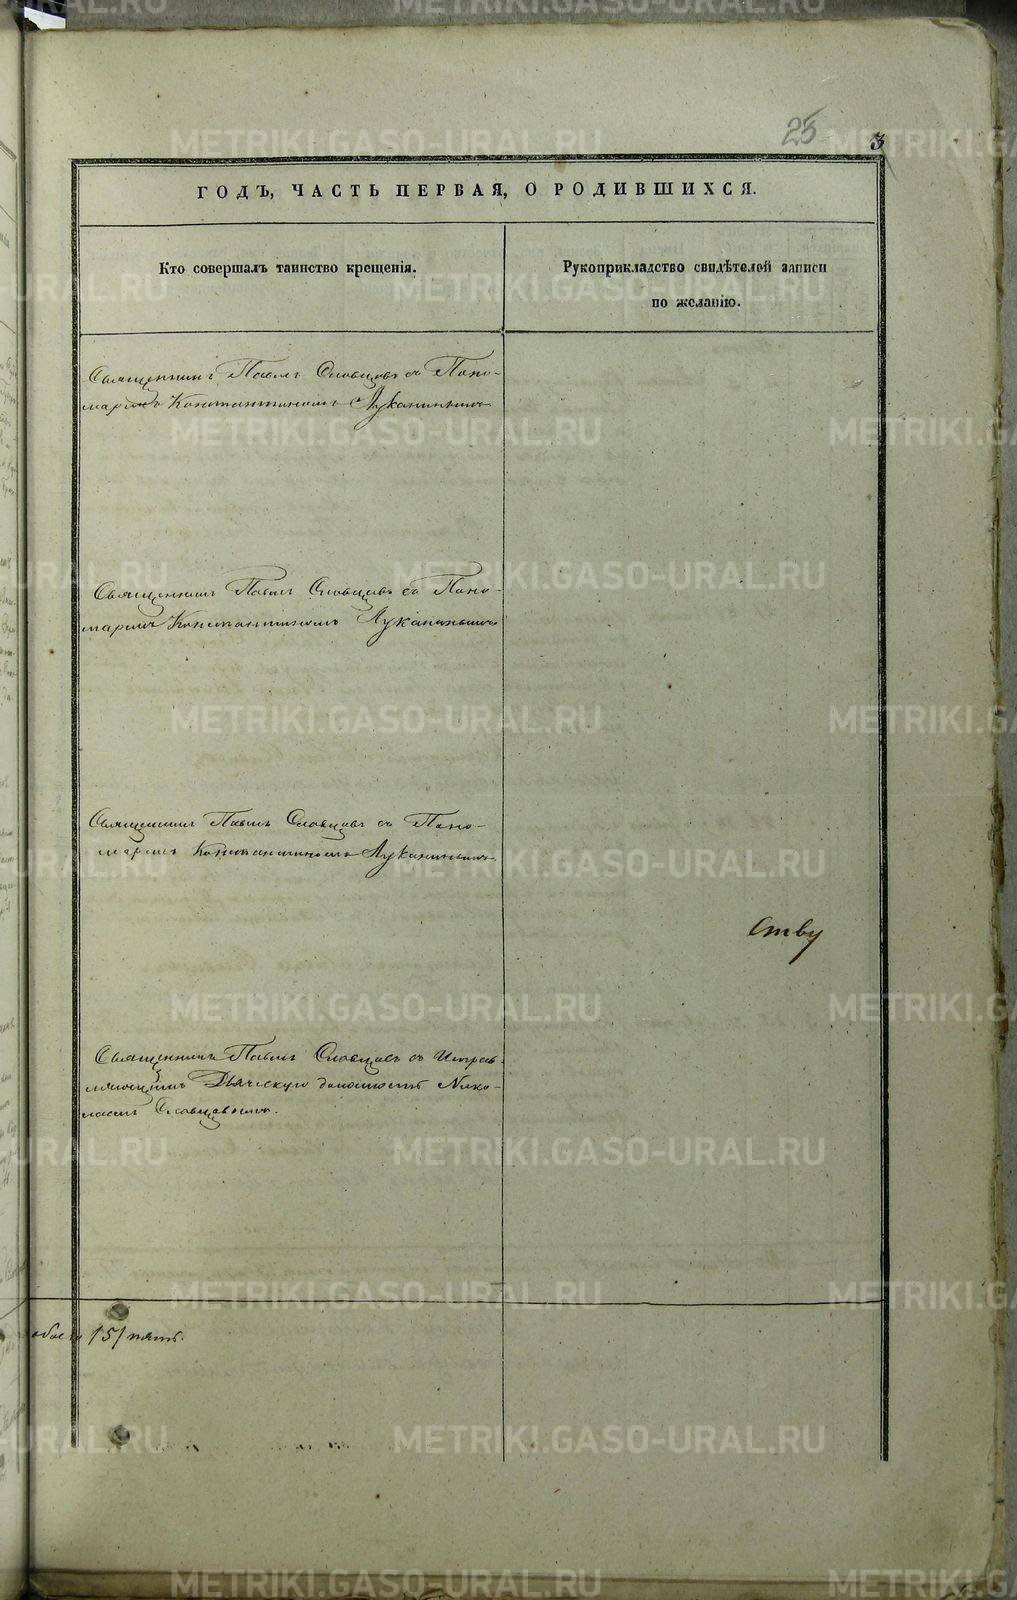 25
3
ГОДЪ, ЧАСТЬ ПЕРВАЯ, О РОДИВШИХСЯ.
Кто совершалъ таинство крещенія.
Рукоприкладство свидѣтелей записи
по желанію.
Священникъ Павелъ Словцовъ съ Поно-
маремъ Константиномъ Луканинымъ
Священникъ Павелъ Словцовъ съ Поно-
маремъ Константиномъ Луканинымъ
Священникъ Павелъ Словцовъ съ Поно-
маремъ Константиномъ Луканинымъ.
ству
Священникъ Павелъ Словцовъ съ Исправ-
ляющимъ Дьяческую должность Нико-
лаемъ Словцовымъ.
обоего /5/ пять.
METRIKI.GASO-URAL.RU